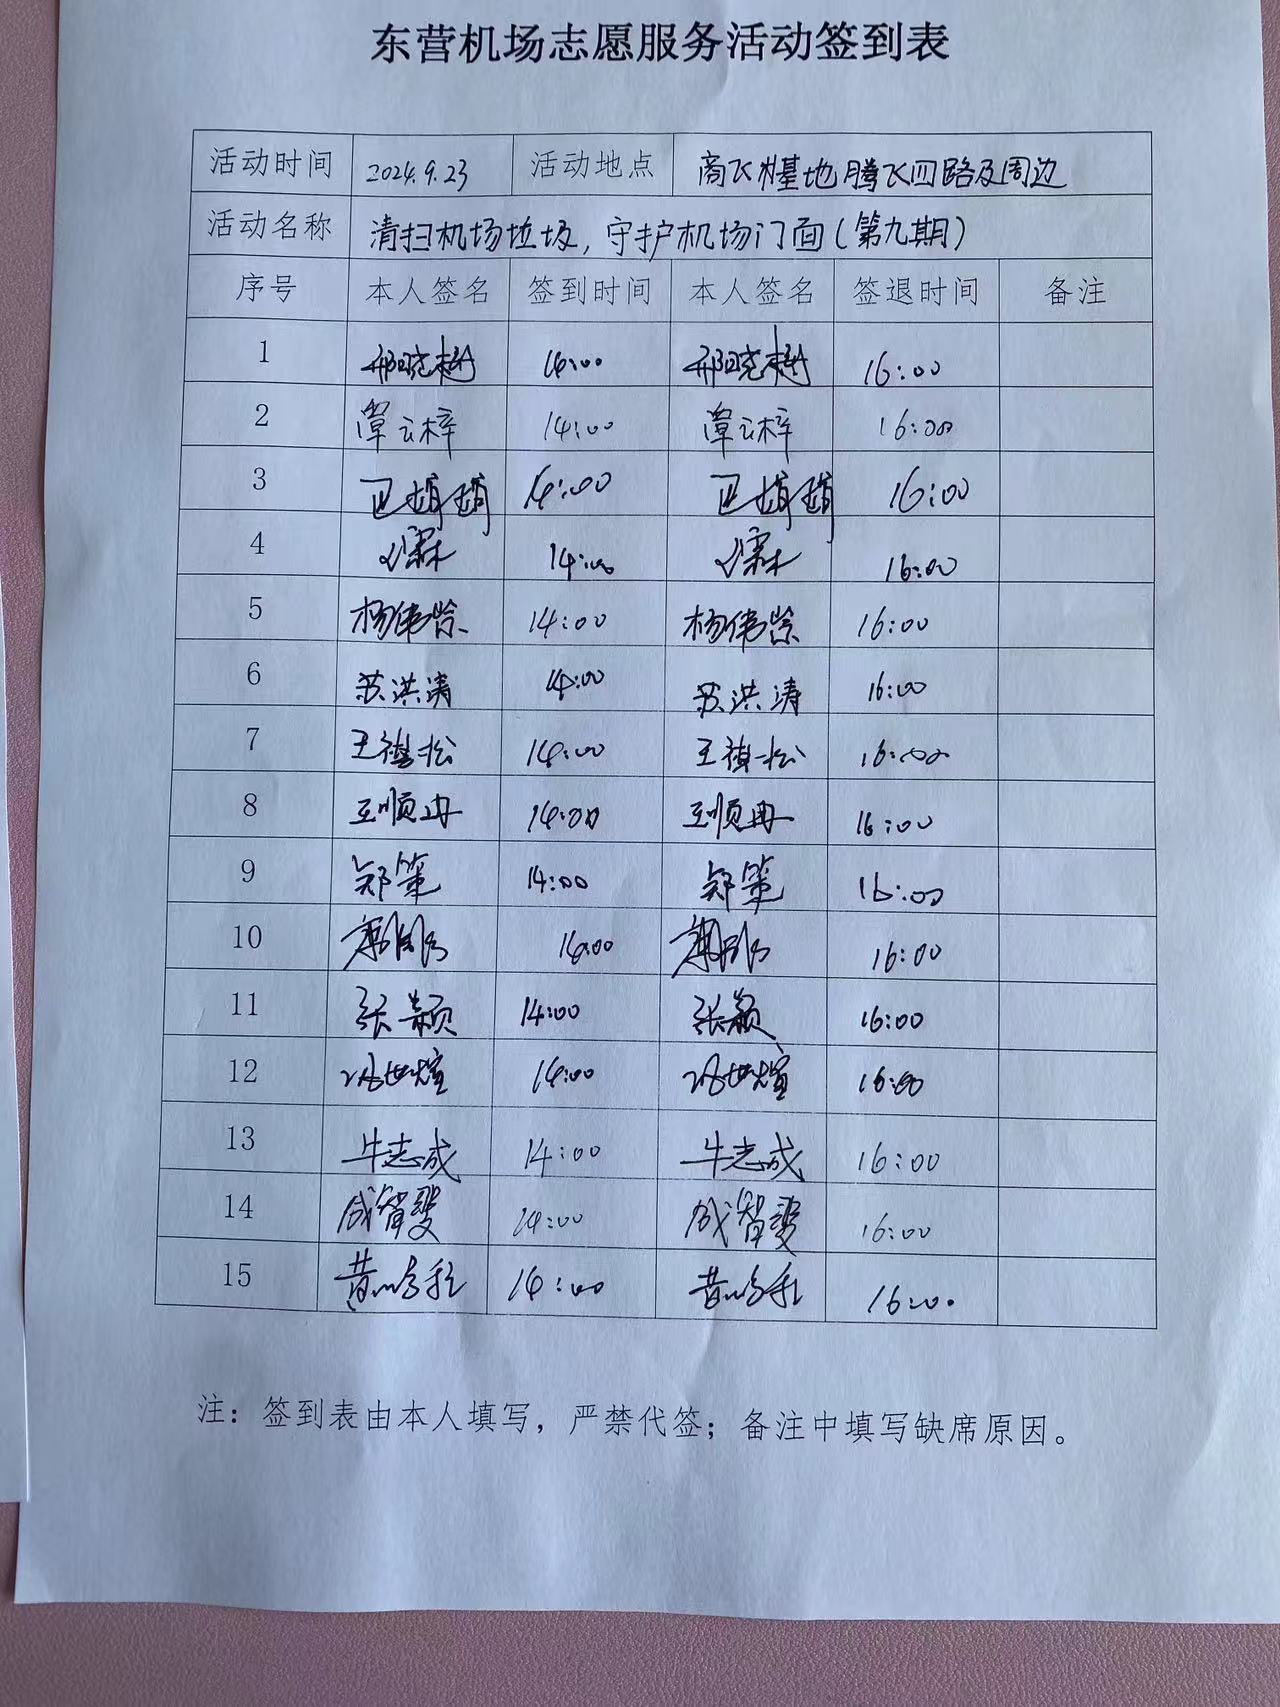 东营机场志愿服务活动签到表
活动时间 2024.9.23 活动地点 商飞基地腾飞四路及周边
活动名称 清扫机场垃圾,守护机场门面(第九期)
序号 本人签名 签到时间 本人签名 签退时间 备注
1 14:00 16:00
2 覃云梓 14:00 覃云梓 16:00
3 14:00 16:00
4 14:00 16:00
5 杨伟 14:00 杨伟 16:00
6 苏洪涛 14:00 苏洪涛 16:00
7 王禛松 14:00 王禛松 16:00
8 王顺冉 14:00 王顺冉 16:00
9 郑策 14:00 郑策 16:00
10 14:00 16:00
11 张颖 14:00 张颖 16:00
12 世煊 14:00 世煊 16:00
13 牛志成 14:00 牛志成 16:00
14 成智雯 14:00 成智雯 16:00
15 14:00 16:00
注：签到表由本人填写，严禁代签；备注中填写缺席原因。